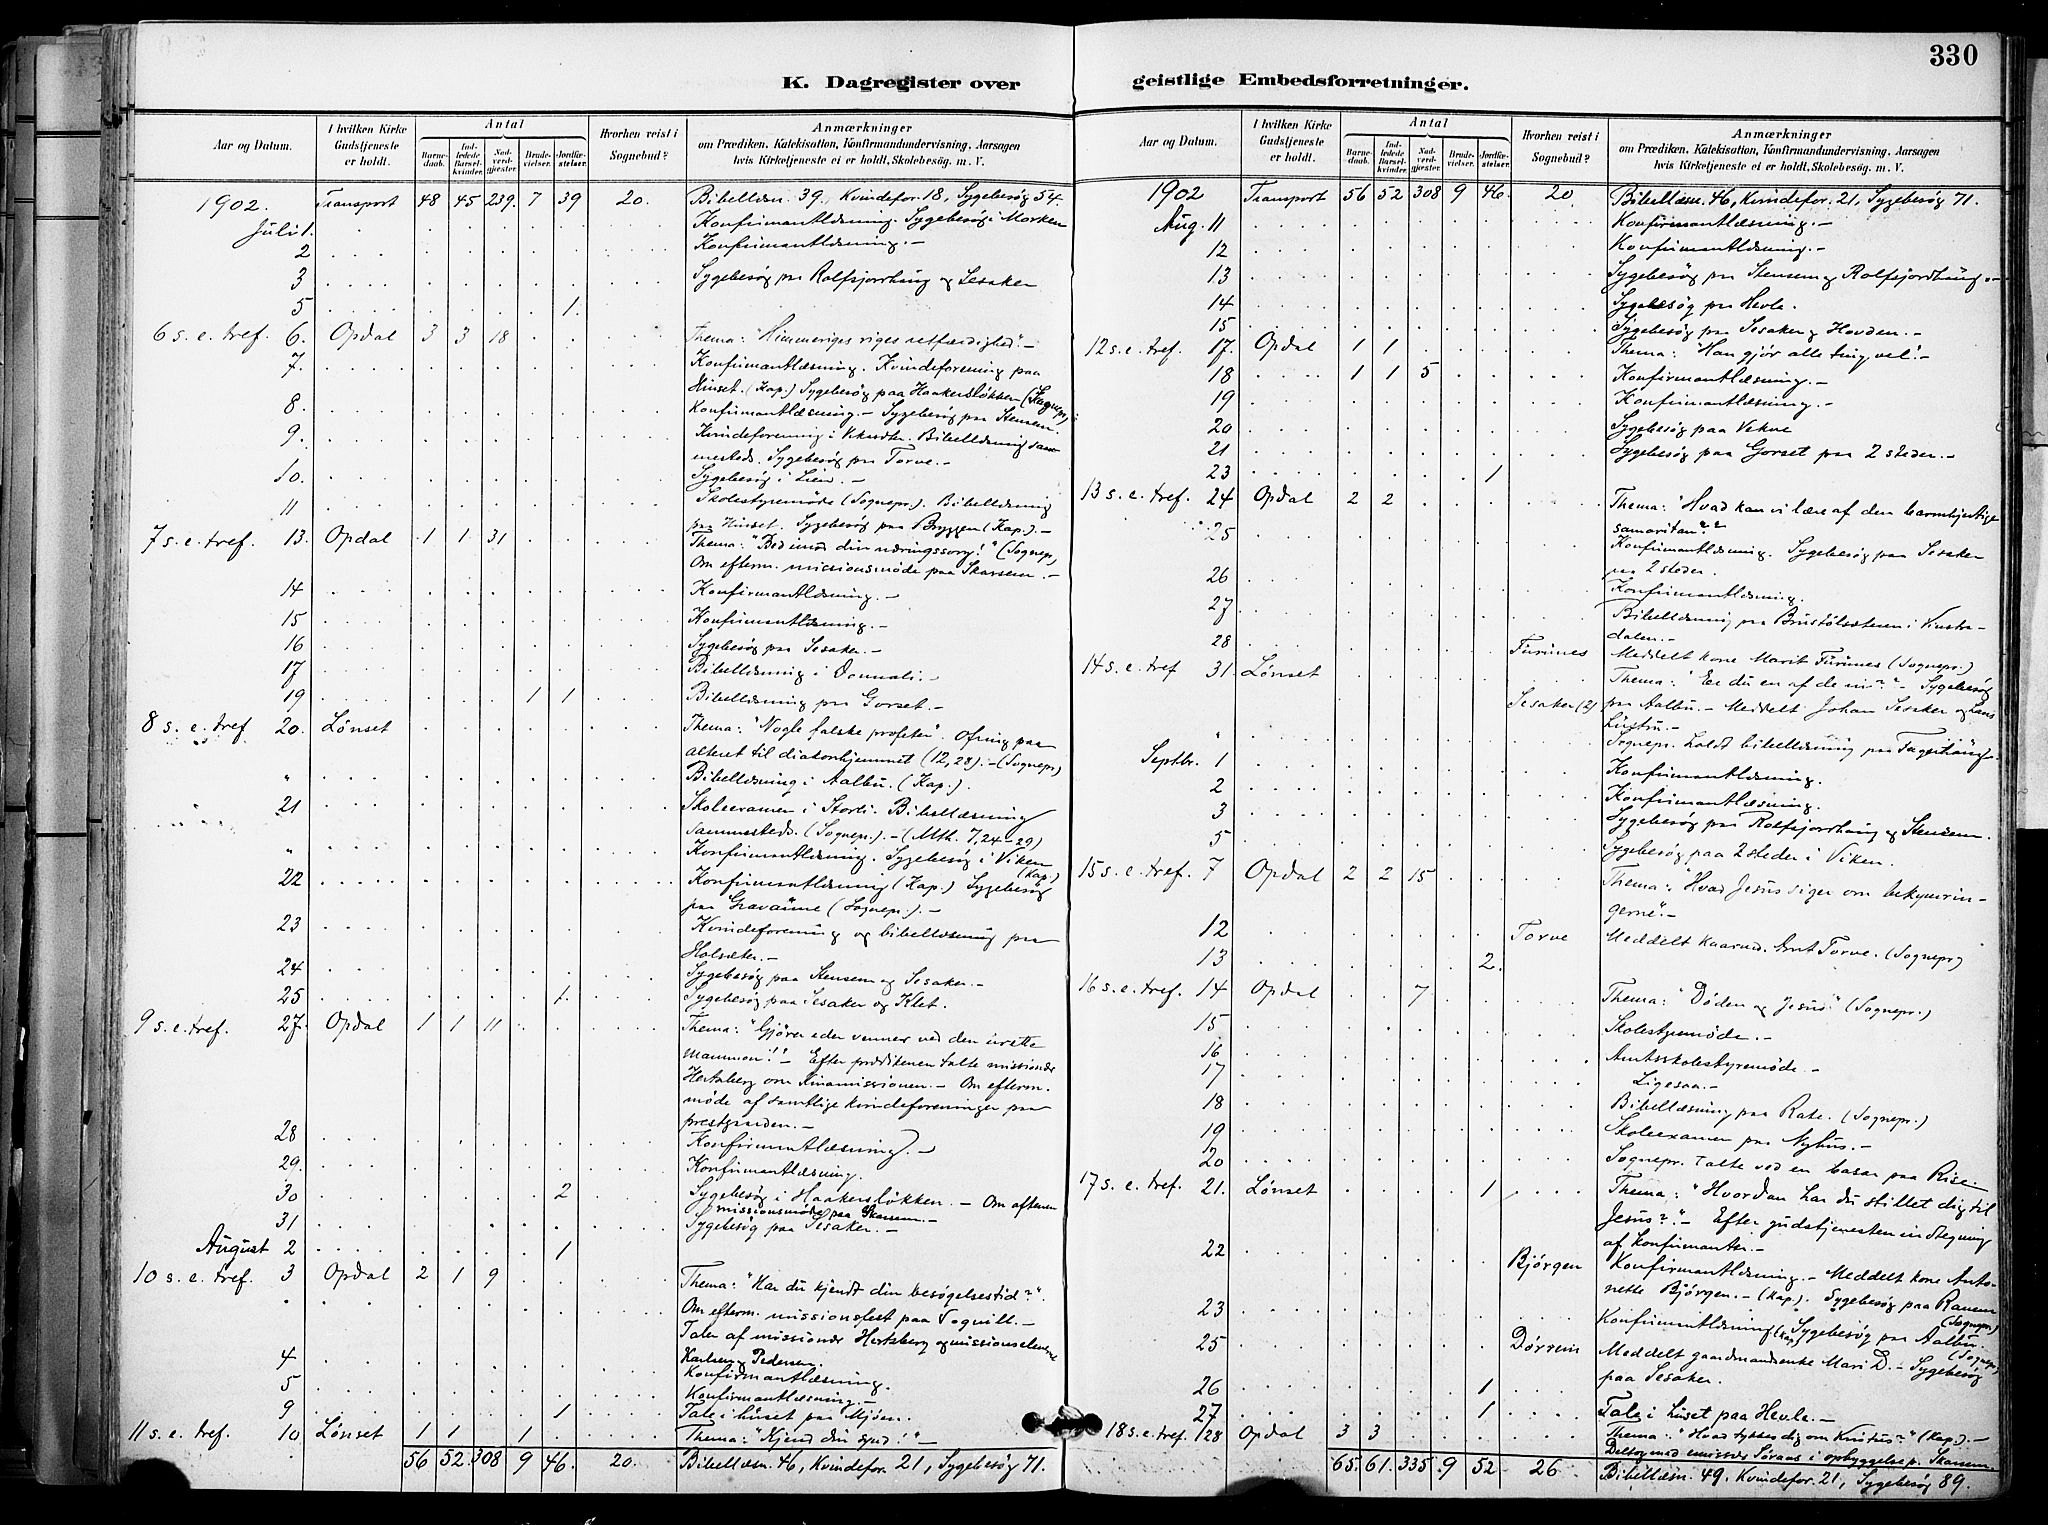 330
K. Dagregister over geistlige Embedsforretninger.
Aar og Datum. I hvilken Kirke Gudstjeneste er holdt. Antal Barnedaab. Indledede Barselkvinder. Nadverdgjester. Brudevielser. Jordfæstelser. Hvorhen reist i Sognebud? Anmærkninger om Prædiken, Katekisation, Konfirmandundervisning, Aarsagen hvis Kirketjeneste ei er holdt, Skolebesøg. m. V.
1902. Transport 48 45 239. 7 39 20. Bibellæsn. 39., Kvindefor. 18, Sygebesøg 54.
Juli 1. Konfirmantlæsning. Sygebesøg i Morken
2 Konfirmantlæsning. –
3 Sygebesøg paa Rolfsjordhaug og Sesaker
5 1.
6 s. e. tref. 6. Opdal 3 3 18 Thema: "Himmeriges riges retfærdighed". –
7. Konfirmantlæsning. Kvindeforening paa
Hinset. (Kap.) Sygebesøg paa Haakersløkken (Sognepr.)
8. Konfirmantlæsning. – Sygebesøg paa Stensem.
9. Kvindeforening i Vekseth. Bibellæsning sam-
mesteds. Sygebesøg paa Torve. –
10. Sygebesøg i Lien. –
11 Skolestyremøde (Sognepr.). Bibellæsning
paa Hinset. Sygebesøg paa Bryggen (Kap.) –
7 s. e. tref. 13. Opdal 1 1 31 Thema: "Bed imod din næringssorg!" (Sognepr.)
Om efterm. missionsmøde paa Skarsem. –
14 Konfirmantlæsning. –
15 Konfirmantlæsning. –
16 Sygebesøg paa Sesaker. –
17 Bibellæsning i Donnali. –
19 1 1 Bibellæsning paa Gorset. –
8 s. e. tref 20. Lønset Thema: "Nogle falske profeter". Ofring paa
alteret til diakonhjemmet (12,28). – (Sognepr)
" Bibellæsning i Aalbu. (Kap.).
21 Skoleexamen i Storli. Bibellæsning
sammesteds. (Sognepr.). – (Mth. 7,24–29)
" Konfirmantlæsning. Sygebesøg i Viken (Kap.)
22 Konfirmantlæsning (Kap.) Sygebesøg
paa Gravaune (Sognepr.). –
23 Kvindeforening og bibellæsning paa
Holsæter. –
24 Sygebesøg paa Stensem og Sesaker. –
25 1. Sygebesøg paa Sesaker og Klet. –
9 s. e. tref. 27. Opdal 1 1 11 Thema: "Gjører eder venner ved den urette
mammon!" – Efter prædikenen talte missionær
Hertzberg om Kinamissionen. – Om efterm.
møde af samtlige kvindeforeninger paa
prestgaarden. –
28 Konfirmantlæsning. –
29. Konfirmantlæsning.
30 2 Sygebesøg i Haakersløkken. – Om aftenen
missionsmøde paa Skarsem. –
31 Sygebesøg paa Sesaker. –
August 2 1
10 s. e. tref. 3 Opdal 2 1 9 Thema: "Har du kjendt din besøgelsestid?".
Om efterm. missionsfest paa Vognill. –
Taler af missionær Hertzberg og missionseleverne
Karlberg Pedersen.
4 Konfirmantlæsning.
5 Konfirmantlæsning. –
9 1 Tale i huset paa Mjøen.
11 s. e. tref. 10 Lønset 1 1 1 Thema: "Kjend din Gud!" –
56 52. 308 9 46. 20. Bibellæsn. 46, Kvindefor. 21, Sygebesøg 71.
1902 Transport 56 52 308 9 46. 20 Bibellæsn. 46, Kvindefor. 21, Sygebesøg 71.
Aug. 11 Konfirmantlæsning. –
12 Konfirmantlæsning. –
13 Sygebesøg paa Stensem og Rolfsjordhaug. –
14 Sygebesøg paa Hevle.
15 Sygebesøg paa Sesaker og Hovden. –
12 s. e. tref. 17. Opdal 1 1 Thema: "Han gjør alle ting vel". –
18 1 1 5 Konfirmantlæsning. –
19 Konfirmantlæsning. –
20 Sygebesøg paa Vekve
21 Sygebesøg paa Gorset paa 2 steder. –
23 1
13 s. e. tref. 24 Opdal 2 2 Thema: "Hvad kan vi lære af den barmhjertige
samaritan?"
25 Konfirmantlæsning. Sygebesøg paa Sesaker
paa 2 steder.
26 Konfirmantlæsning.
27 Bibellæsning paa Brustølsæteren i Vinstra-
dalen. –
28 Furunes Meddelt kone Marit Furunes (Sognepr.)
14 s. e. tref 31. Lønset Thema: "Er du en af de ni?" – Sygebesøg
Sesaker (2) paa Aalbu. – Meddelt Johan Sesaker og Lars
" Sognepr. holdt bibellæsning paa Fagerhaug
Septbr. 1 Konfirmantlæsning.
2 Konfirmantlæsning.
3 Sygebesøg paa Rolfsjordhaug og Stensem.
5 Sygebesøg paa 2 steder i Viken.
15 s. e. tref. 7 Opdal 2 2 15 Thema: "Hvad Jesus siger om bekymrin-
gerne". –
12 Torve Meddelt kaarmd. Arnt Torve. (Sognepr)
13 2.
16 s. e. tref. 14 Opdal 7 Thema: "Døden og Jesus." (Sognepr.)
15 Skolestyremøde. –
16 Amtsskolestyremøde. –
17 Ligesaa. –
18 Bibellæsning paa Rate. (Sognepr.)
19 Skoleexamen paa Nyhus. –
20 Sognepr. talte ved en basar paa Rise.
17 s. e. tref. 21. Lønset 1 Thema: "Hvordan har du stillet dig til
Jesus?". – Efter gudstjenesten indtegning
af konfirmanter. –
22 Bjørgen Konfirmantlæsning. – Meddelt kone Anto-
nette Bjørgen. – (Kap.). Sygebesøg paa Ransem (Sognepr)
23 Konfirmantlæsning (Kap) Sygebesøg paa Aalbu (Sognepr.)
25 Dørrem Meddelt gaardmandsenke Mari D. – Sygebesøg
paa Sesaker.
26 1
27 1 Tale i huset paa Hevle. –
18 s. e. tref. 28 Opdal 3 3 Thema: "Hvad tykkes dig om Kristus?" (Kap.). –
Deltog med emissær Søraas i opbyggelse p. Skarsem.
65. 61. 335. 9 52 26 Bibellæsn. 49. Kvindefor. 21, Sygebesøg 89.